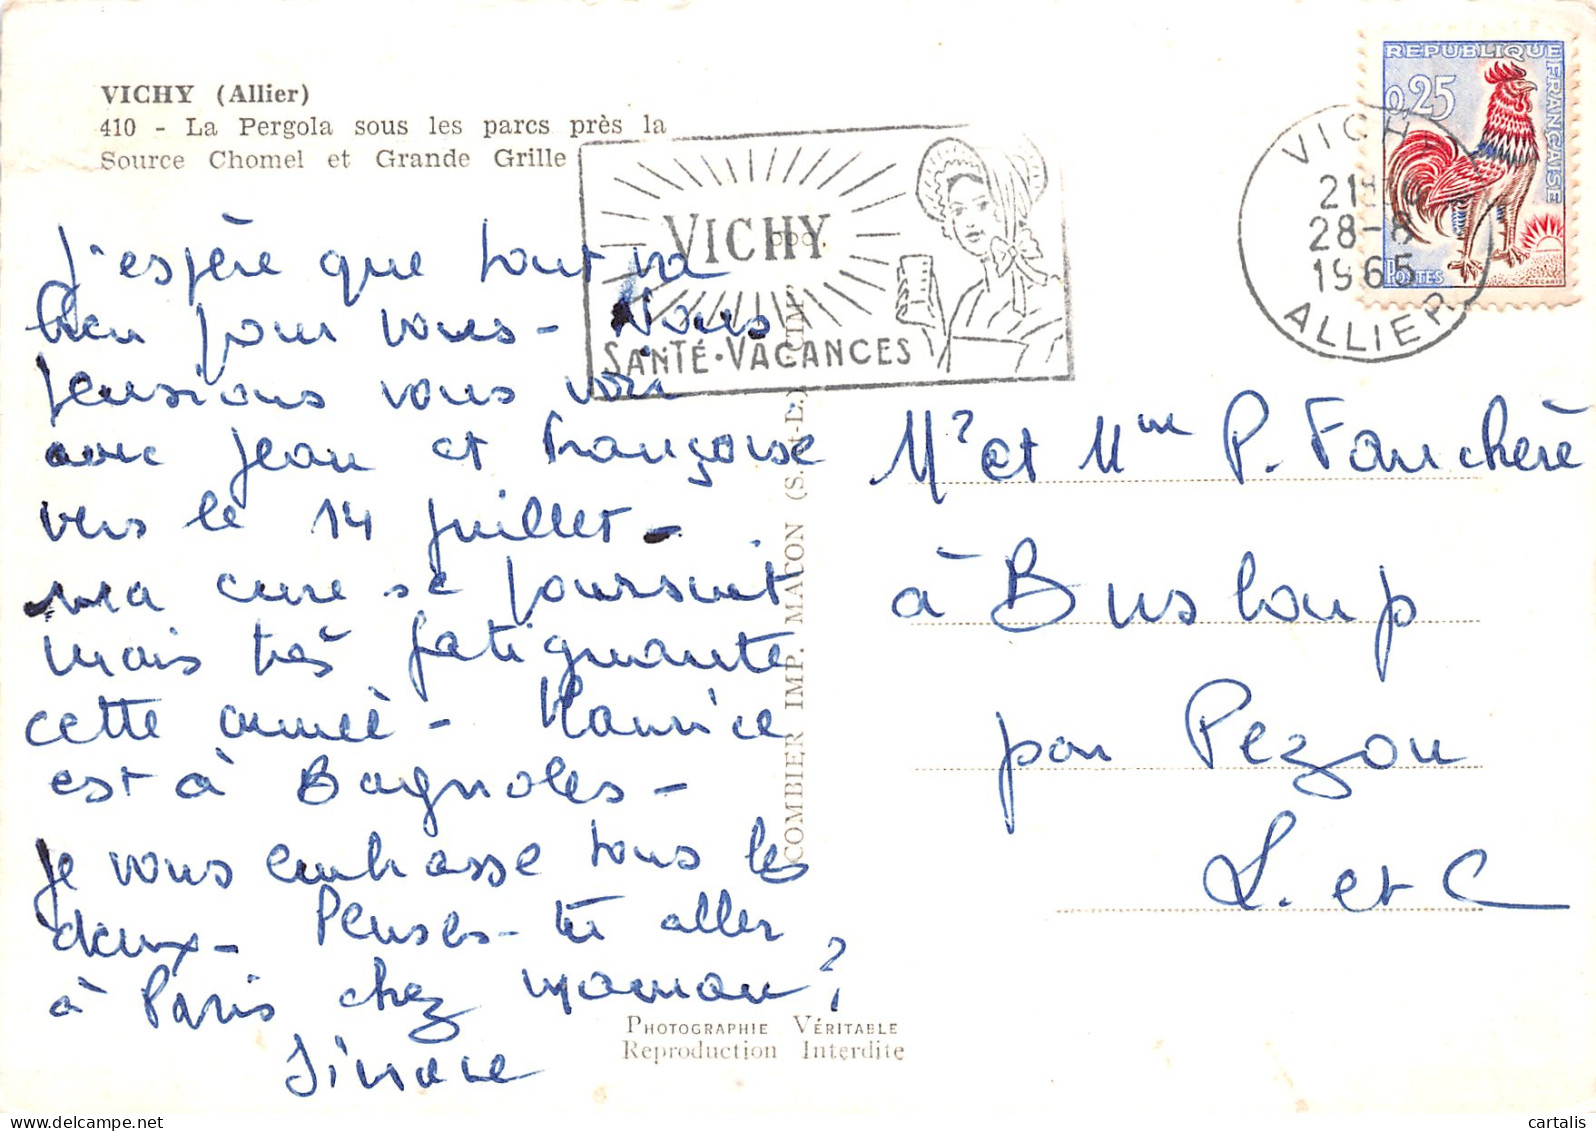 VICHY (Allier)
410 - La Pergola sous les parcs près la
Source Chomel et Grande Grille
J'espère que tout va
bien pour vous - Nous
pensions vous voir
avec Jean et Françoise
vers le 14 juillet -
ma cure se poursuit
mais très fatiguante
cette année - Maurice
est à Bagnoles -
Je vous embrasse tous les
deux - Penses-tu aller
à Paris chez maman ?
Simone
VICHY
SANTÉ • VACANCES
COMBIER IMP. MACON (S.-et-L.)
PHOTOGRAPHIE VÉRITABLE
Reproduction Interdite
REPUBLIQUE FRANÇAISE
0,25
POSTES
DECARIS
VICHY
28-8
1965
ALLIER
Mr et Mme P. Fauchère
à Busloup
par Pezou
L. et C
cartalis
delcampe.net